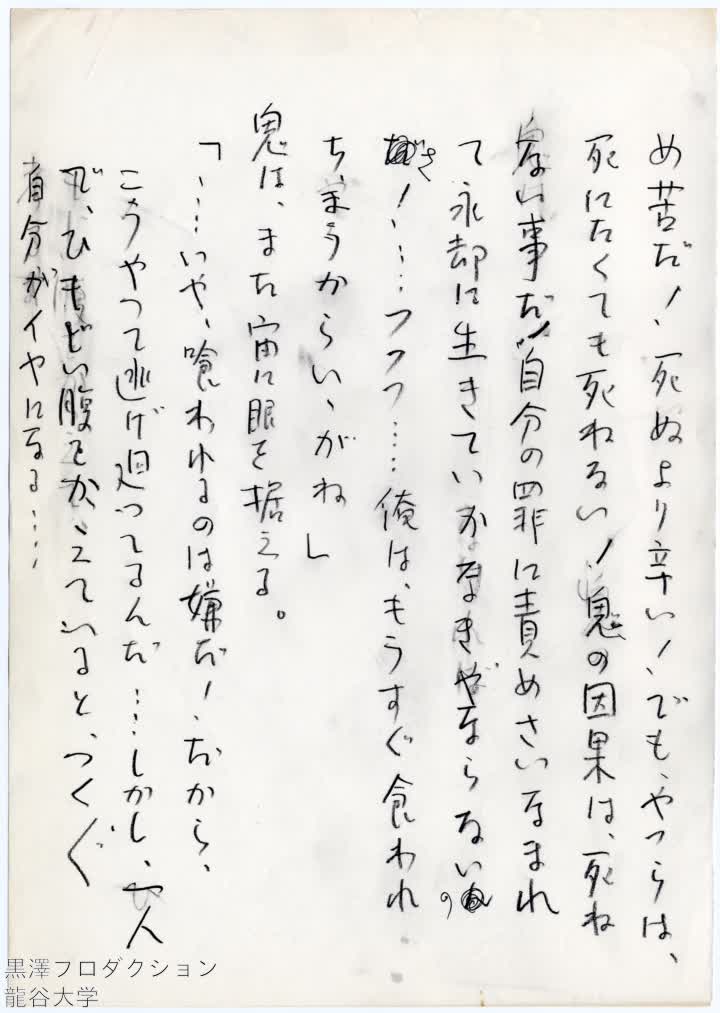 め苦だ！、死ぬより辛い！、でも、やつらは、
死にたくても死ねない！鬼の因果は、死ね
ない事だ！自分の罪に責めさいなまれ
て永却に生きていかなきゃならないの
さ！……フフフ……俺は、もうすぐ食われ
ちまうからいゝがね」
鬼は、また宙に眼を据える。
「……いや、喰われるのは嫌だ！、だから、
こうやって逃げ廻ってるんだ……しかし、一人
で、ひもじい腹をかゝえていると、つくぐ
自分がイヤになる……
黒澤プロダクション
龍谷大学